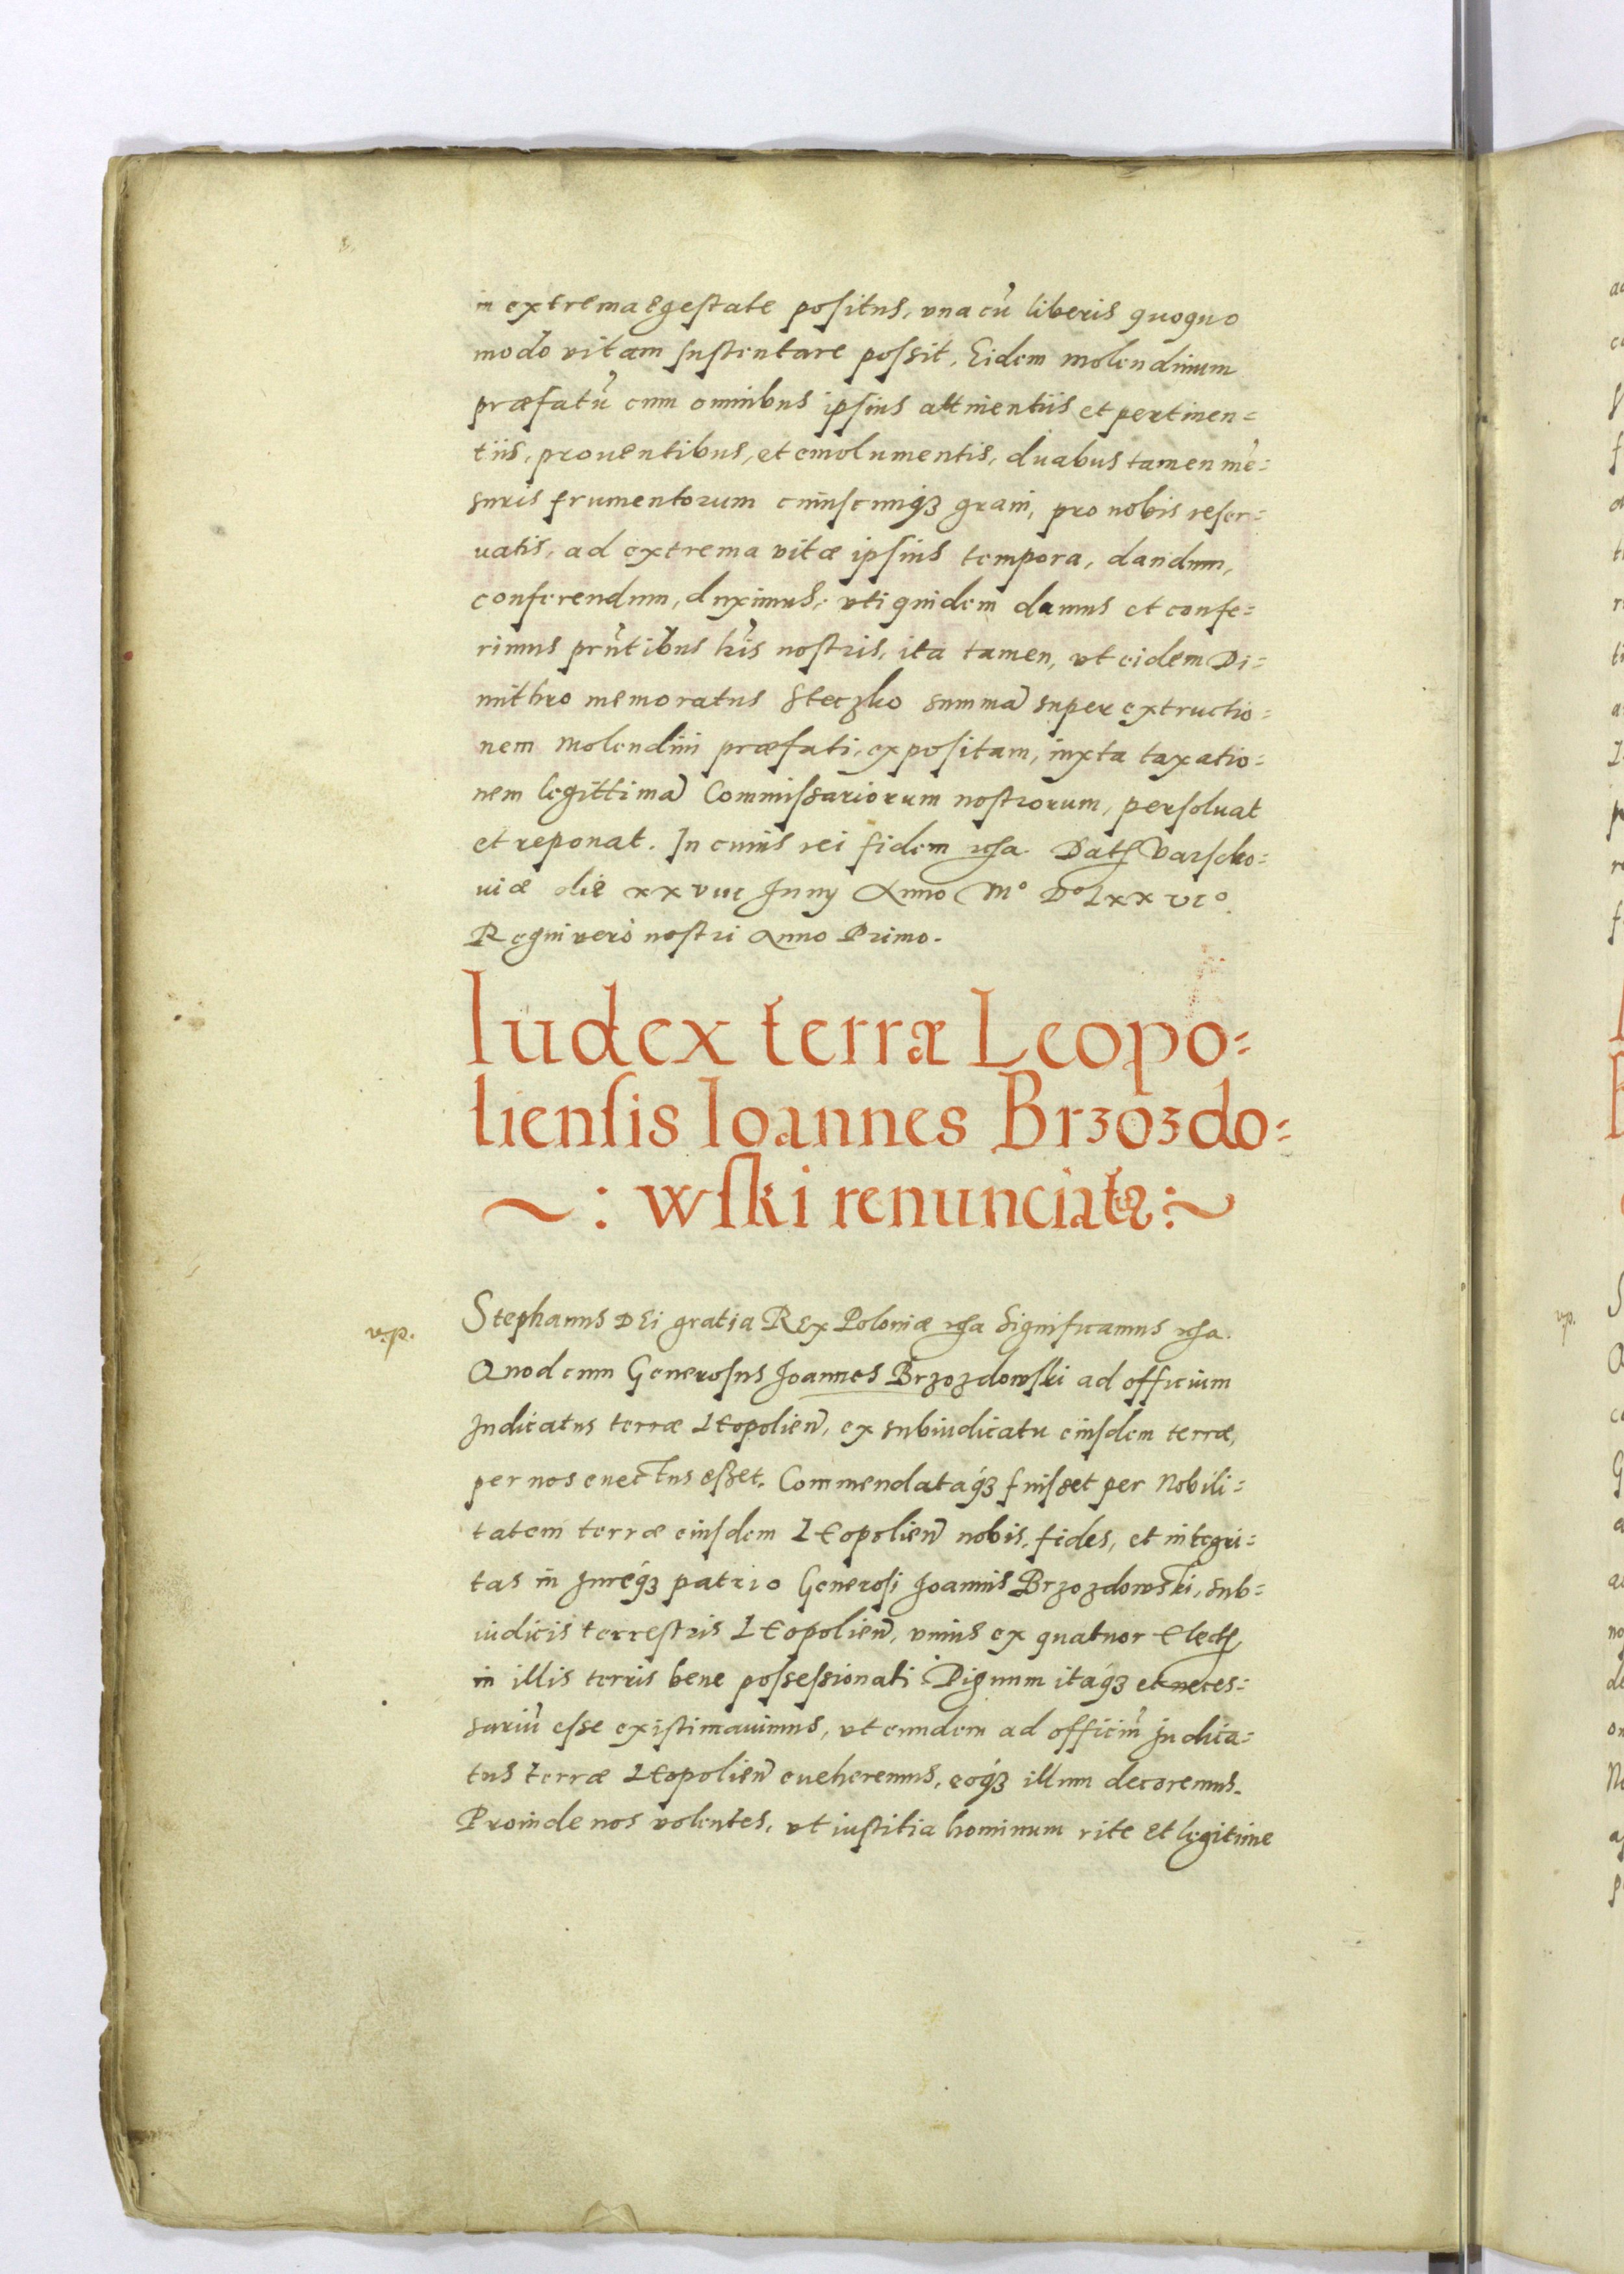 in extrema egestate positus, vna cu᷉ liberis quoquo
modo vitam sustentare possit. Eidem molendinum
præfatu᷉ cum omnibus ipsius attinentiis et pertinen=
tiis, prouentibus, et emolumentis, duabus tamen me᷉=
suris frumentorum cuiuscunq́ꝫ grani, pro nobis reser=
uatis, ad extrema vitæ ipsius tempora, dandum,
conferendum, duximus, vti quidem damus et confe=
rimus prn᷉tibus lr᷉is nostris, ita tamen, vt eidem Di=
mithro memoratus Steczko summa᷉ super extructio=
nem molendini præfati, expositam, iuxta taxatio=
nem legittima᷉ Commissariorum nostrorum, persoluat
et reponat. In cuius rei fidem Datꝭ Varscho=
uiæ die xxviii Iunij Anno M° D° Lxxvi°.
Regni verò nostri Anno Primo.
Iudex terræ Leopo=
liensis Ioannes Brzozdo=
~: wſki renunciatꝭ :~
v.p.
Stephanus DEi gratia REx Poloniæ Significamus
Quod cum Generosus Joannes Brzozdowski ad officium
Judicatus terræ LEopolien᷉, ex subiudicatu eiusdem terræ,
per nos euectus esset. Commendataq́ꝫ fuisset per Nobili=
tatem terræ eiusdem LEopolien᷉ nobis, fides, et integri=
tas in Jureq́ꝫ patrio Generosi Joannis Brzozdowski, sub=
iudicis terrestris LEopolien᷉, vnius ex quatuor Electꝭ
in illis terris bene possessionati. Dignum itaq́ꝫ et neces=
sariu᷉ esse existimauimus, vt eundem ad officiu᷉ Judica=
tus terræ LEopolien᷉ eueheremus, eoq́ꝫ illum decoremus.
Proinde nos volentes, vt iustitia hominum rite et legitime